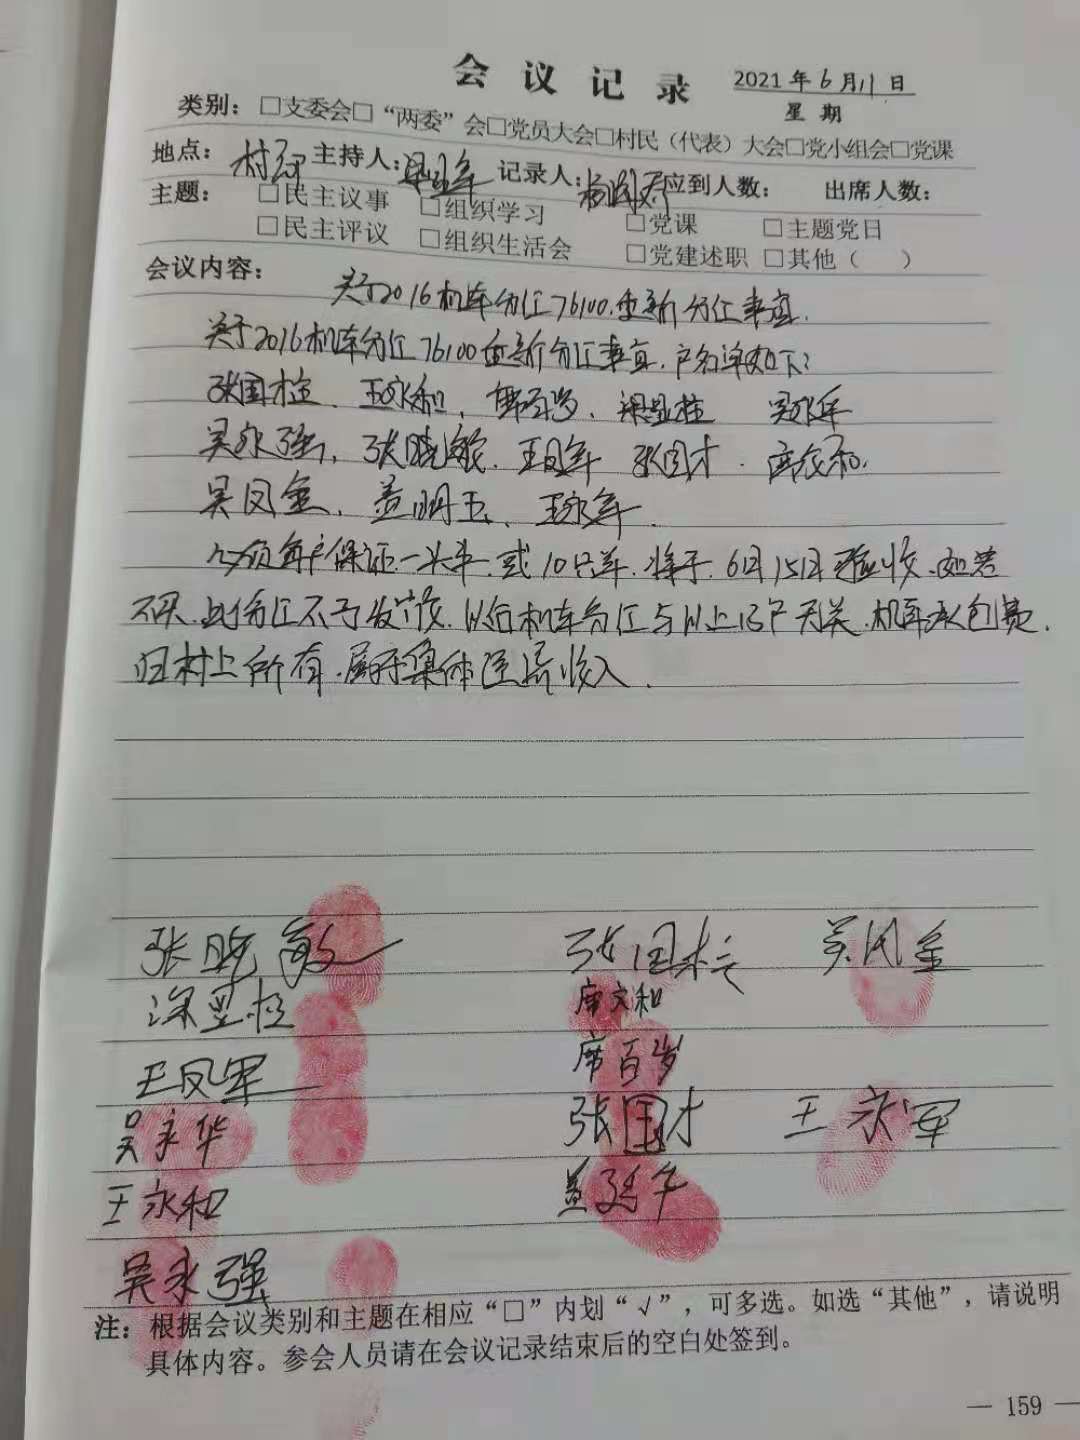 会议记录 2021年6月11日
星期
类别：□支委会□“两委”会□党员大会□村民（代表）大会□党小组会□党课
地点：村部 主持人： 记录人： 应到人数： 出席人数：
主题：□民主议事 □组织学习 □党课 □主题党日
□民主评议 □组织生活会 □党建述职 □其他（ ）
会议内容：
关于2016机车分红76100.重新分红事宜.
关于2016机车分红76100重新分红事宜.户名单如下：
张国柱、王永和、席百岁、梁显柱 吴永华
吴永强、张晓敏、王凤军 张国才、席文和.
吴凤金、盖明玉、王永军.
必须每户保证一头牛.或10只羊.将于.6月15日验收.如若
不只.此分红不予发放.以后机车分红与以上13户无关.机车承包费.
归村上所有.属于集体经济收入.
张晓敏 张国柱 吴凤金
梁显柱 席文和
王凤军 席百岁
吴永华 张国才 王永军
王永和
吴永强
注：根据会议类别和主题在相应“□”内划“√”，可多选。如选“其他”，请说明
具体内容。参会人员请在会议记录结束后的空白处签到。
— 159 —